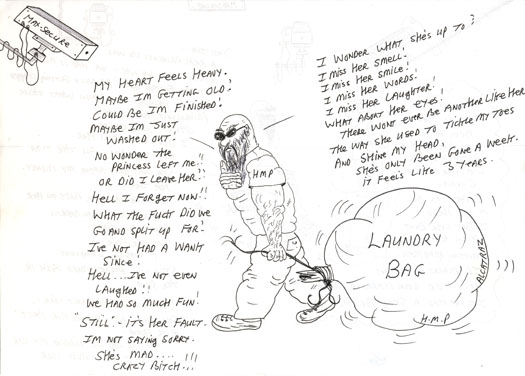 MAX-SECURE
MY HEART FEELS HEAVY.
MAYBE IM GETTING OLD!
COULD BE IM FINISHED!
MAYBE IM JUST
WASHED OUT!
NO WONDER THE
PRINCESS LEFT ME!!
OR DID I LEAVE HER?!!
HELL I FORGET NOW!!
WHAT THE FUCK DID WE
GO AND SPLIT UP FOR!
I'VE NOT HAD A WANK
SINCE!
HELL... I'VE NOT EVEN
LAUGHED!!
WE HAD SO MUCH FUN!
"STILL".- IT'S HER FAULT.
IM NOT SAYING SORRY.
SHE'S MAD.... !!!
CRAZY BITCH...
I WONDER WHAT, SHE'S UP TO?
I MISS HER SMELL.
I MISS HER SMILE!
I MISS HER WORDS.
I MISS HER LAUGHTER!
WHAT ABOUT HER EYES!
THERE WONT EVER BE ANOTHER LIKE HER
THE WAY SHE USED TO TICKLE MY TOES
AND SHINE MY HEAD,
SHE'S ONLY BEEN GONE A WEEK.
IT FEELS LIKE 3 YEARS.
HMP
LAUNDRY
BAG
ALCATRAZ
H.M.P